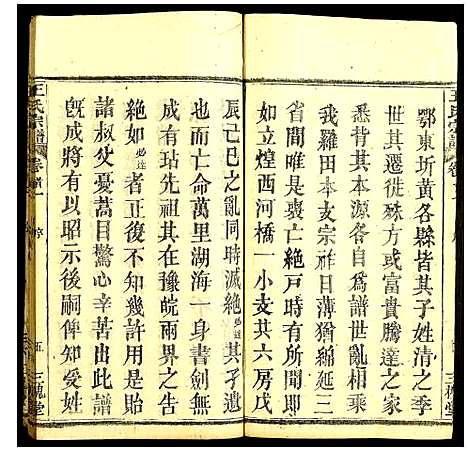 鄂東圻黃各縣皆其子姓清之季
世其遷徙殊方或富貴騰達之家
悉背其本源各自爲譜世亂相乘
我羅田本支宗祚日薄猶緜延三
如立煌西河橋一小支其六房戊
窗亡絕戸時有所聞即
王氏宗譜
卷首一
序
五
三槐堂
辰己巳之亂同時滅絕必達其孑遺
也而亡命萬里湖海一身書劍無
成有玷先祖其在豫皖兩省情同
絕如必達者正復不知幾許用是貽
諸叔父憂蒿目驚心幸苦由此譜
既成將有以昭示後嗣俾知受姓